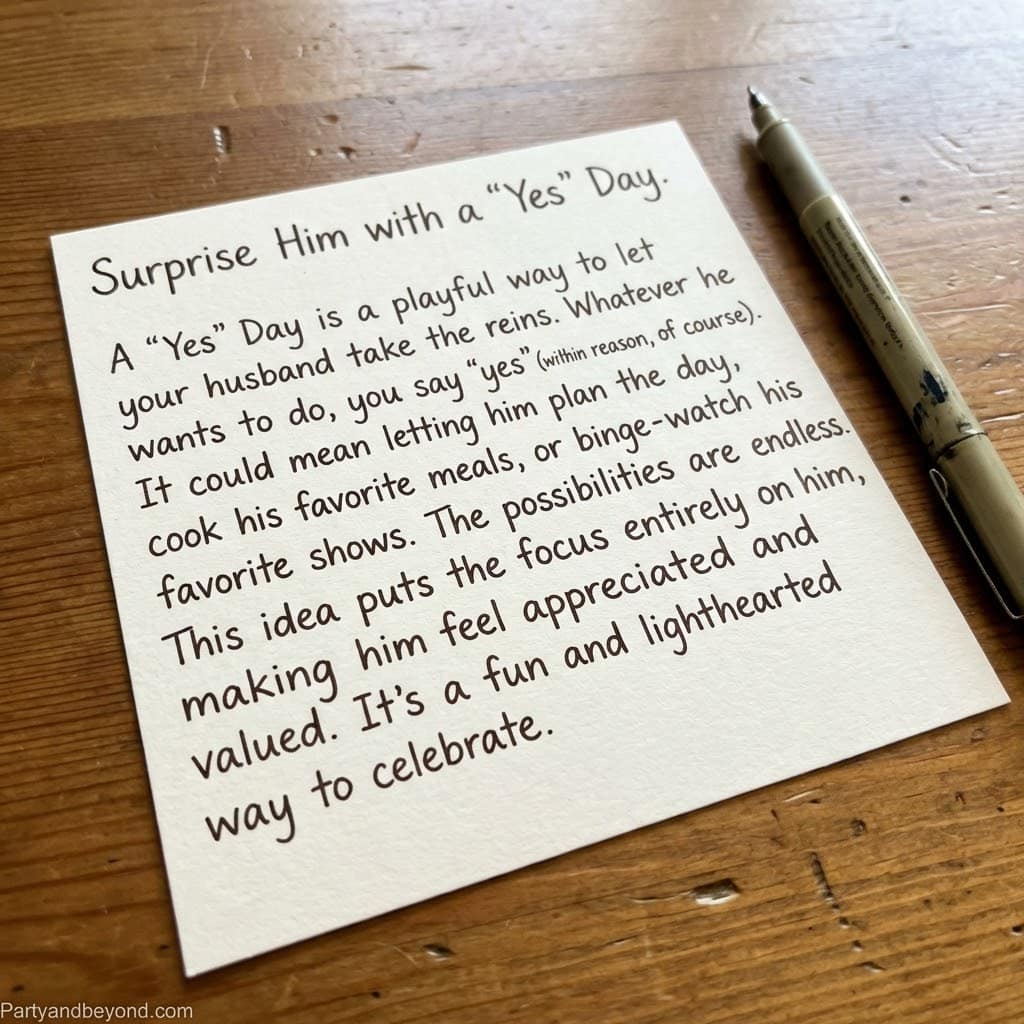 Surprise Him with a “Yes” Day.
A “Yes” Day is a playful way to let
your husband take the reins. Whatever he
wants to do, you say “yes” (within reason, of course).
It could mean letting him plan the day,
cook his favorite meals, or binge-watch his
favorite shows. The possibilities are endless.
This idea puts the focus entirely on him,
making him feel appreciated and
valued. It's a fun and lighthearted
way to celebrate.
Partyandbeyond.com